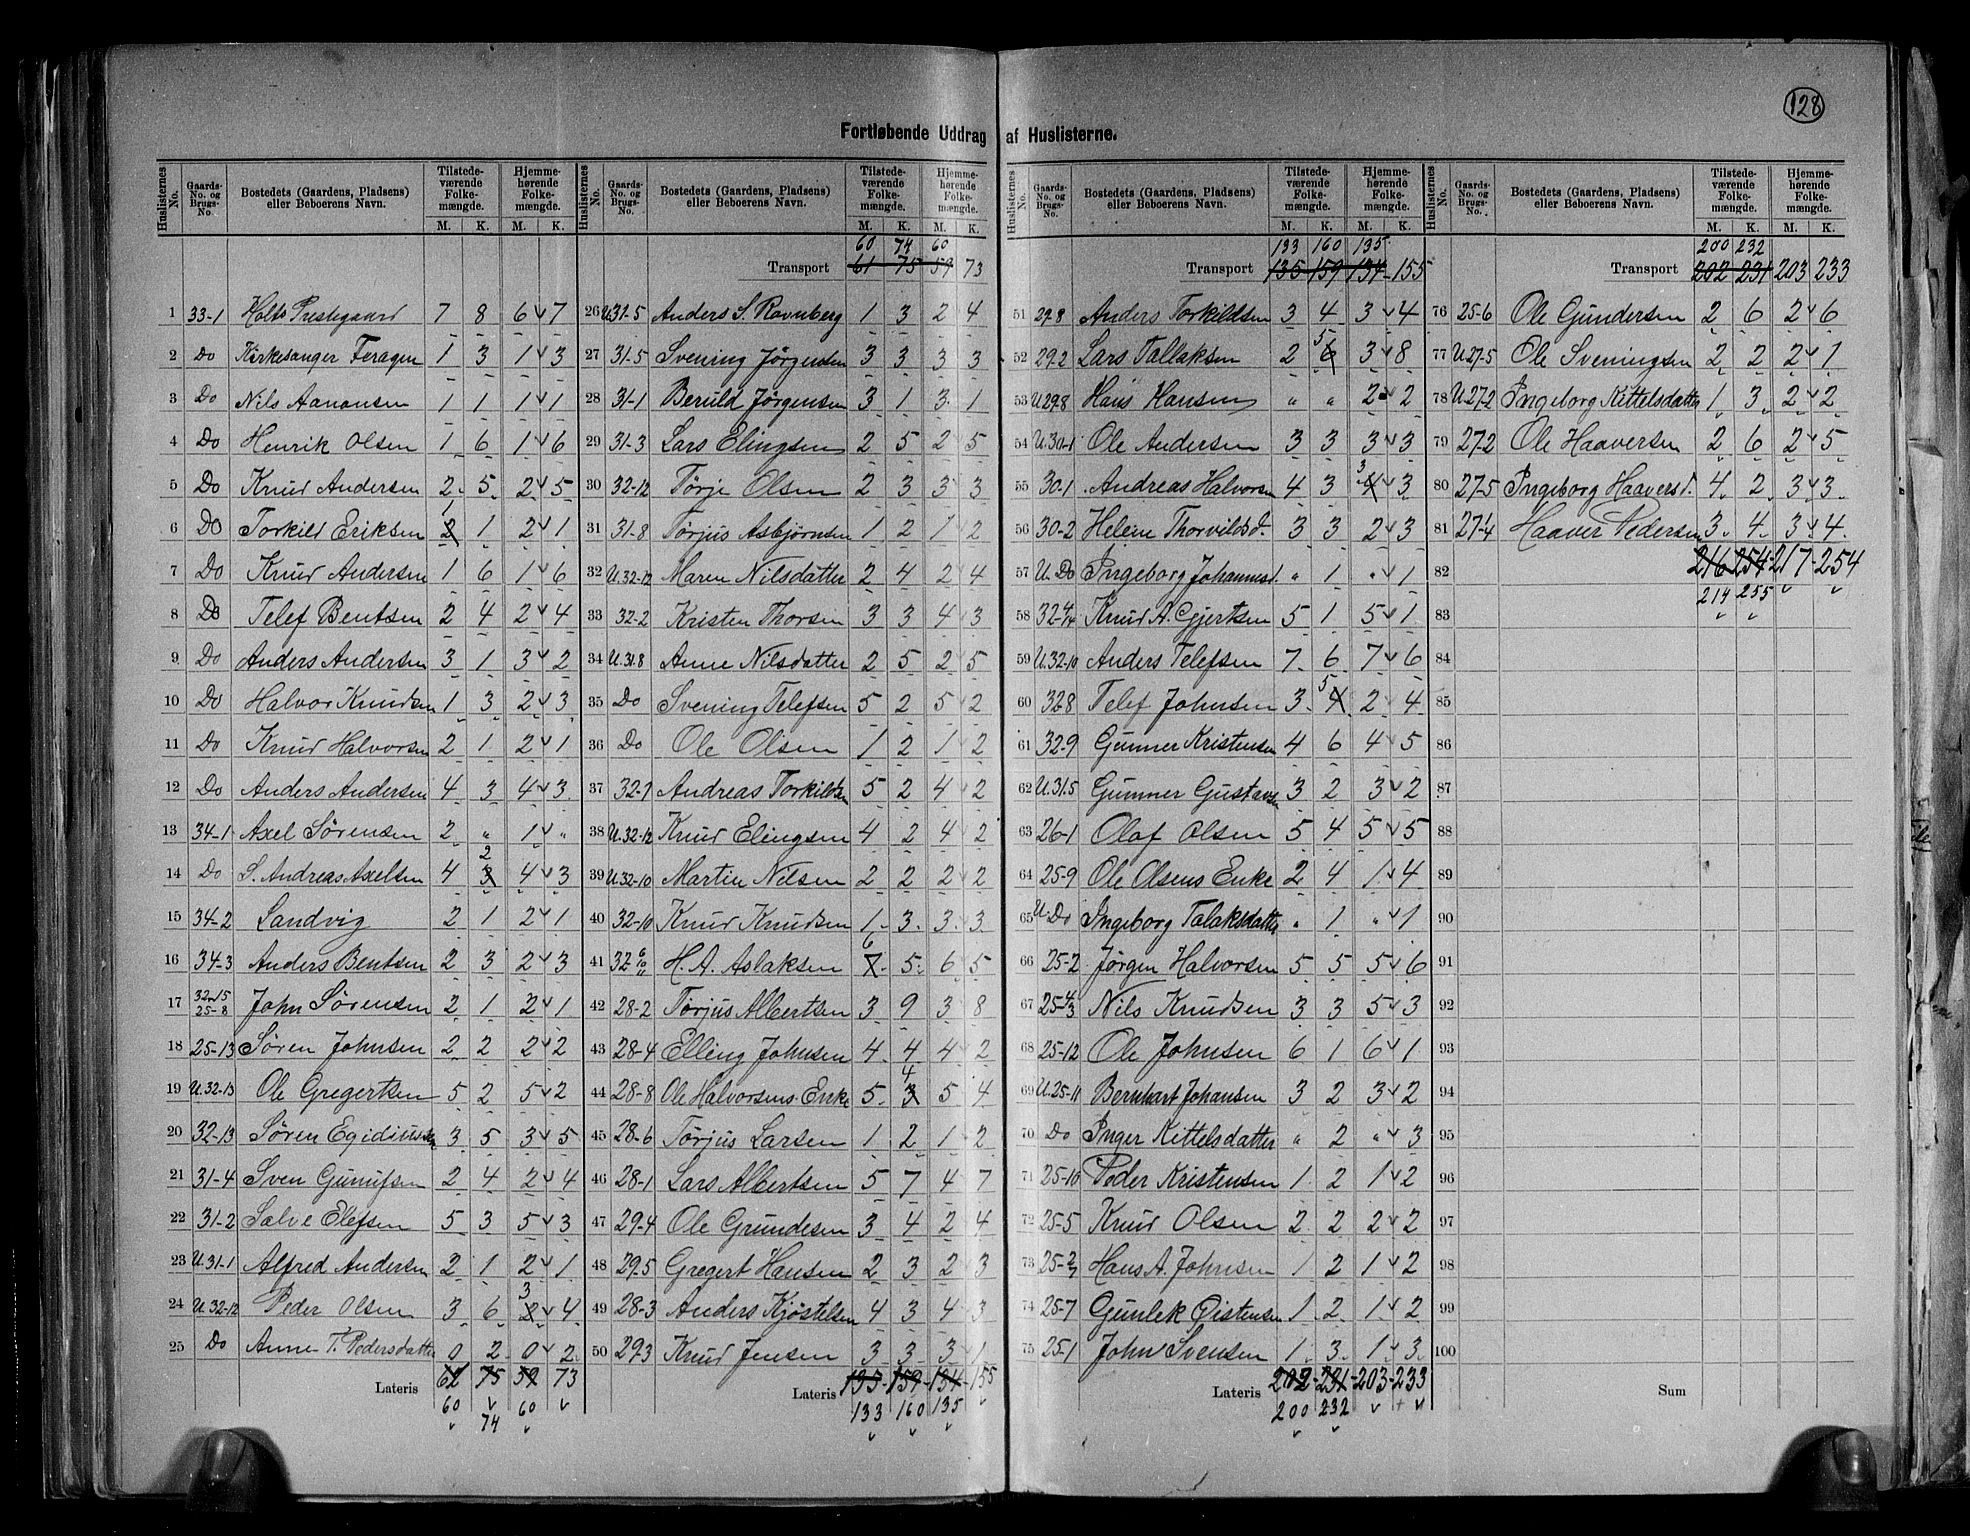 128
Fortløbende Uddrag af Huslisterne.
Huslisternes No. Gaards- No. og Brugs- No. Bostedets (Gaardens, Pladsens) eller Beboerens Navn. Tilstedeværende Folkemængde. M. K. Hjemmehørende Folkemængde. M. K.
1 33-1 Holts Prestegaard 7 8 6 7
2 Do Kirkesanger Feragen 1 3 1 3
3 Do Nils Aanonsen 1 1 1 1
4 Do Henrik Olsen 1 6 1 6
5 Do Knud Andersen 2 5 2 5
6 Do Torkild Eriksen 2 1 1 2 1
7 Do Knud Andersen 1 6 1 6
8 Do Telef Bentsen 2 4 2 4
9 Do Anders Andersen 3 1 3 2
10 Do Halvor Knudsen 1 3 2 3
11 Do Knud Halvorsen 2 1 2 1
12 Do Anders Andersen 4 3 4 3
13 34-1 Axel Sørensen 2 " 1 "
14 Do S. Andreas Axelsen 4 3 2 4 3
15 34-2 Sandvig 2 1 2 1
16 34-3 Anders Bentsen 2 3 2 3
17 32-15 25-8 John Sørensen 2 1 2 1
18 25-13 Søren Johnsen 2 2 2 2
19 U.32-13 Ole Gregertsen 5 2 5 2
20 32-13 Søren Egidiussen 3 5 3 5
21 31-4 Sven Gunufsen 2 4 2 4
22 31-2 Salve Elefsen 5 3 5 3
23 U.31-1 Alfred Andersen 2 1 2 1
24 U.32-12 Peder Olsen 3 6 2 3 4
25 Do Anne T. Pedersdatter 0 2 0 2
Lateris 62 75 59 73
60 74 60
Huslisternes No. Gaards- No. og Brugs- No. Bostedets (Gaardens, Pladsens) eller Beboerens Navn. Tilstedeværende Folkemængde. M. K. Hjemmehørende Folkemængde. M. K.
60 74 60
Transport 61 75 59 73
26 U31-5 Anders S. Ravnberg 1 3 2 4
27 31-5 Svening Jørgensen 3 3 3 3
28 31-1 Beruld Jørgensen 3 1 3 1
29 31-3 Lars Elingsen 2 5 2 5
30 32-12 Tørje Olsen 2 3 3 3
31 31-8 Tørjus Asbjørnsen 1 2 1 2
32 U.32-12 Maren Nilsdatter 2 4 2 4
33 32-2 Kristen Thorsen 3 3 4 3
34 U.31-8 Anne Nilsdatter 2 5 2 5
35 Do Svening Telefsen 5 2 5 2
36 Do Ole Olsen 1 2 1 2
37 32-7 Andreas Torkildsen 5 2 4 2
38 U.32-12 Knud Elingsen 4 2 4 2
39 U.32-10 Martin Nilsen 2 2 2 2
40 32-10 Knud Knudsen 1 3 3 3
41 32 H. A. Aslaksen 7 6 5 6 5
42 28-2 Tørjus Albertsen 3 9 3 8
43 28-4 Elling Johnsen 4 4 4 2
44 28-8 Ole Halvorsens Enke 5 3 4 5 4
45 28-6 Tørjus Larsen 1 2 1 2
46 28-1 Lars Albertsen 5 7 4 7
47 29-4 Ole Grundesen 3 4 2 4
48 29-5 Gregert Hansen 2 3 2 3
49 28-3 Anders Kjøstelsen 4 3 4 3
50 29-3 Knud Jensen 3 3 3 1
Lateris 135 159 134 155
133 160 135
Huslisternes No. Gaards- No. og Brugs- No. Bostedets (Gaardens, Pladsens) eller Beboerens Navn. Tilstedeværende Folkemængde. M. K. Hjemmehørende Folkemængde. M. K.
133 160 135
Transport 135 159 134 155
51 29-8 Anders Torkildsen 3 4 3 4
52 29-2 Lars Tallaksen 2 6 5 3 8
53 U29-8 Hans Hansen " " 2 2
54 U.30-1 Ole Andersen 3 3 3 3
55 30-1 Andreas Halvorsen 4 3 4 3 3
56 30-2 Helene Thorvildsd. 3 3 2 3
57 U. Do Ingeborg Johannesd. " 1 " 1
58 32-4/14 Knud A. Gjertsen 5 1 5 1
59 U.32-10 Anders Telefsen 7 6 7 6
60 32-8 Telef Johnsen 3 4 5 2 4
61 32-9 Gunner Kristensen 4 6 4 5
62 U.31.5 Gunner Gustavsen 3 2 3 2
63 26-1 Olaf Olsen 5 4 5 5
64 25-9 Ole Olsens Enke 2 4 1 4
65 U. Do Ingeborg Talaksdatter " 1 " 1
66 25-2 Jørgen Halvorsen 5 5 5 6
67 25-4/3 Nils Knudsen 3 3 5 3
68 25-12 Ole Johnsen 6 1 6 1
69 U.25-11 Bernhart Johansen 3 2 3 2
70 Do Inger Kittelsdatter " 2 " 3
71 25-10 Peder Kristensen 1 2 1 2
72 25-5 Knud Olsen 2 2 2 2
73 25-2/7 Hans A. Johnsen 1 2 1 2
74 25-7 Gunlek Østensen 1 2 1 2
75 25-1 John Svensen 1 3 1 3
Lateris 202 231 203 233
200 232
Huslisternes No. Gaards- No. og Brugs- No. Bostedets (Gaardens, Pladsens) eller Beboerens Navn. Tilstedeværende Folkemængde. M. K. Hjemmehørende Folkemængde. M. K.
200 232
Transport 202 231 203 233
76 25-6 Ole Gundersen 2 6 2 6
77 U.27-5 Ole Sveningsen 2 2 2 1
78 U.27-2 Ingeborg Kittelsdatter 1 3 2 2
79 27-2 Ole Haaversen 2 6 2 5
80 27-5 Ingeborg Haaversd. 4 2 3 3
81 27-4 Haaver Pedersen 3 4 3 4
82 216 254 217 254
214 255
83
84
85
86
87
88
89
90
91
92
93
94
95
96
97
98
99
100
Sum